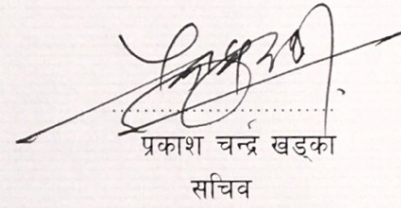 प्रकाश चन्द्र खड्का
सचिव